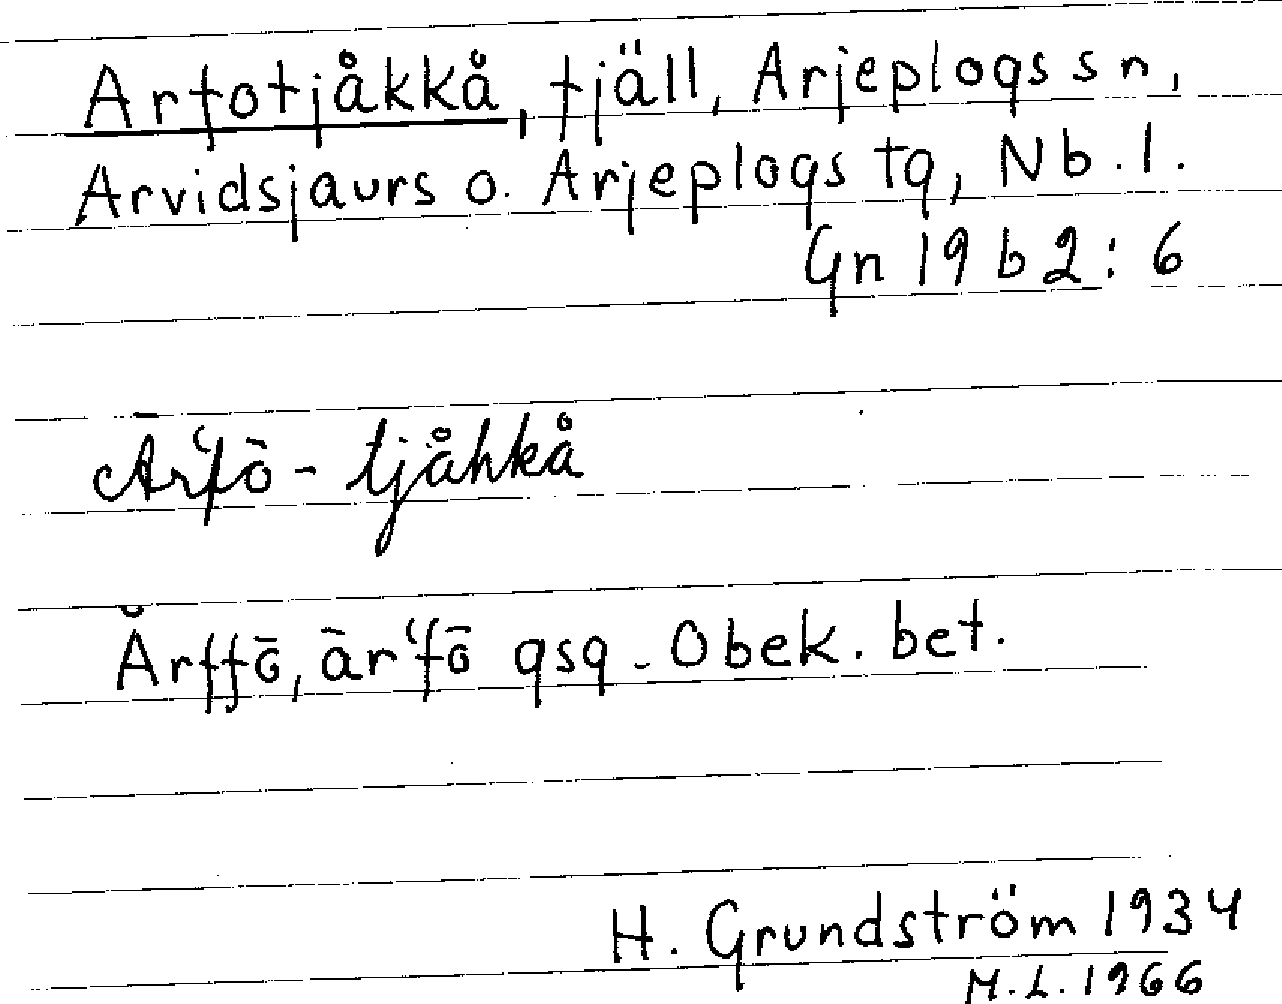 Arfotjåkkå, fjäll, Arjeplogs sn,
Arvidsjaurs o. Arjeplogs tg, Nb.l.
Gn 19 b 2:6
Arʻfō-tjåhkå
Ărffō, ārʻfō gsg. Obek. bet.
H. Grundström 1934
M.L. 1966